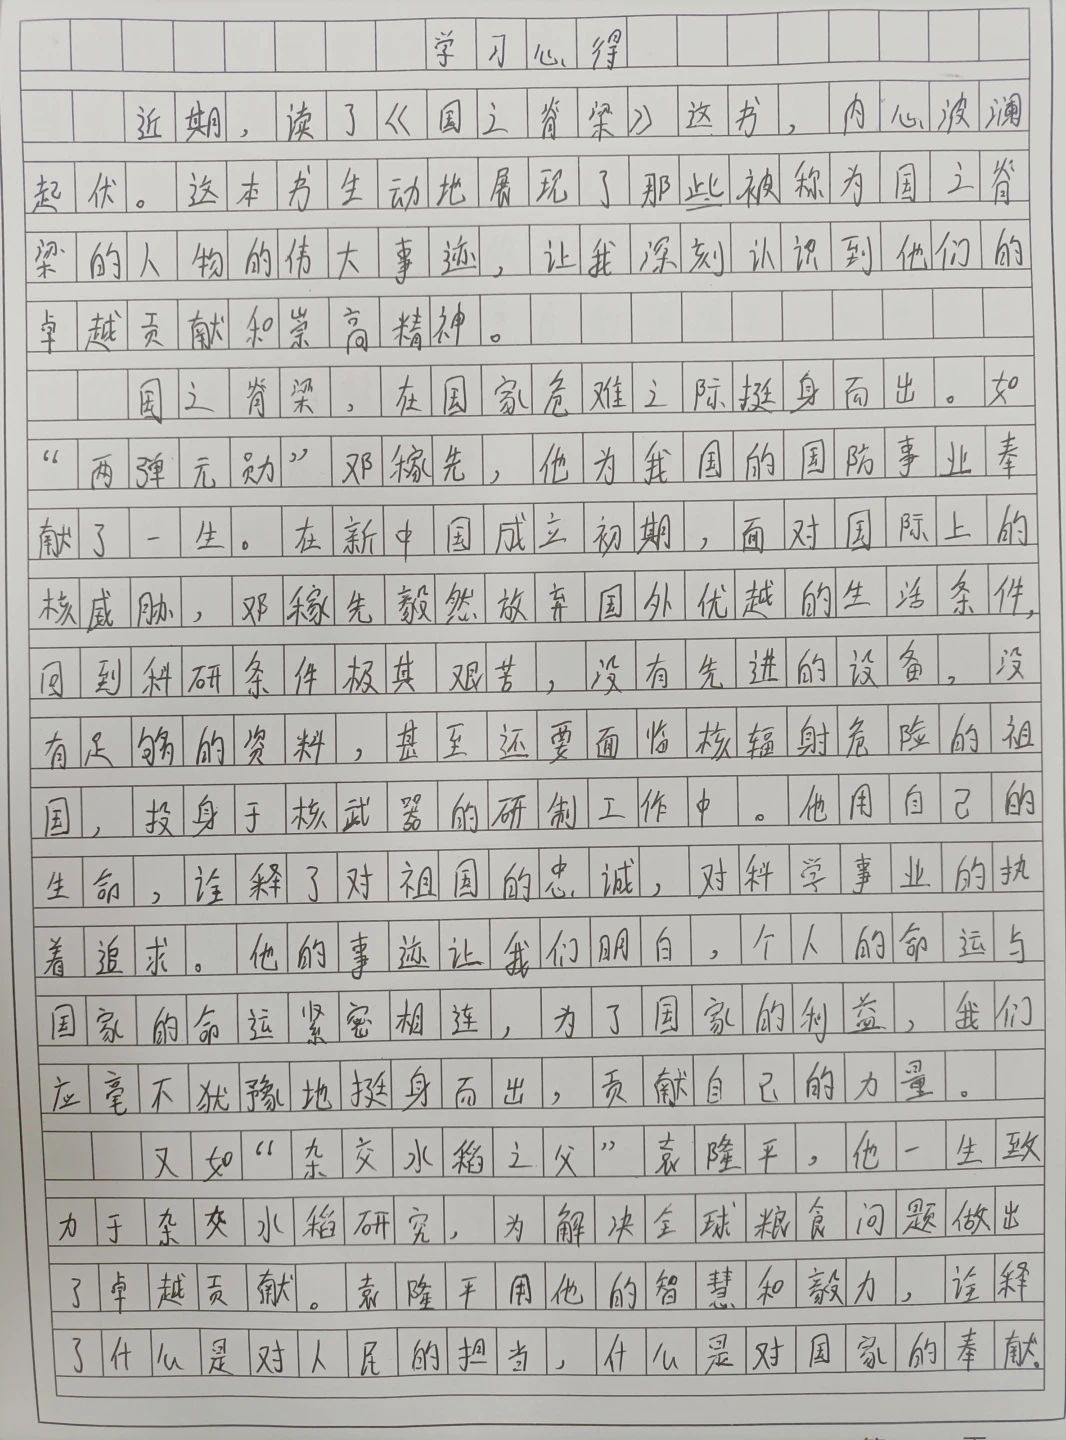 学习心得
近期，读了《国之脊梁》这书，内心波澜
起伏。这本书生动地展现了那些被称为国之脊
梁的人物的伟大事迹，让我深刻认识到他们的
卓越贡献和崇高精神。
国之脊梁，在国家危难之际挺身而出。如
“两弹元勋”邓稼先，他为我国的国防事业奉
献了一生。在新中国成立初期，面对国际上的
核威胁，邓稼先毅然放弃国外优越的生活条件，
回到科研条件极其艰苦，没有先进的设备，没
有足够的资料，甚至还要面临核辐射危险的祖
国，投身于核武器的研制工作中。他用自己的
生命，诠释了对祖国的忠诚，对科学事业的执
着追求。他的事迹让我们明白，个人的命运与
国家的命运紧密相连，为了国家的利益，我们
应毫不犹豫地挺身而出，贡献自己的力量。
又如“杂交水稻之父”袁隆平，他一生致
力于杂交水稻研究，为解决全球粮食问题做出
了卓越贡献。袁隆平用他的智慧和毅力，诠释
了什么是对人民的担当，什么是对国家的奉献。